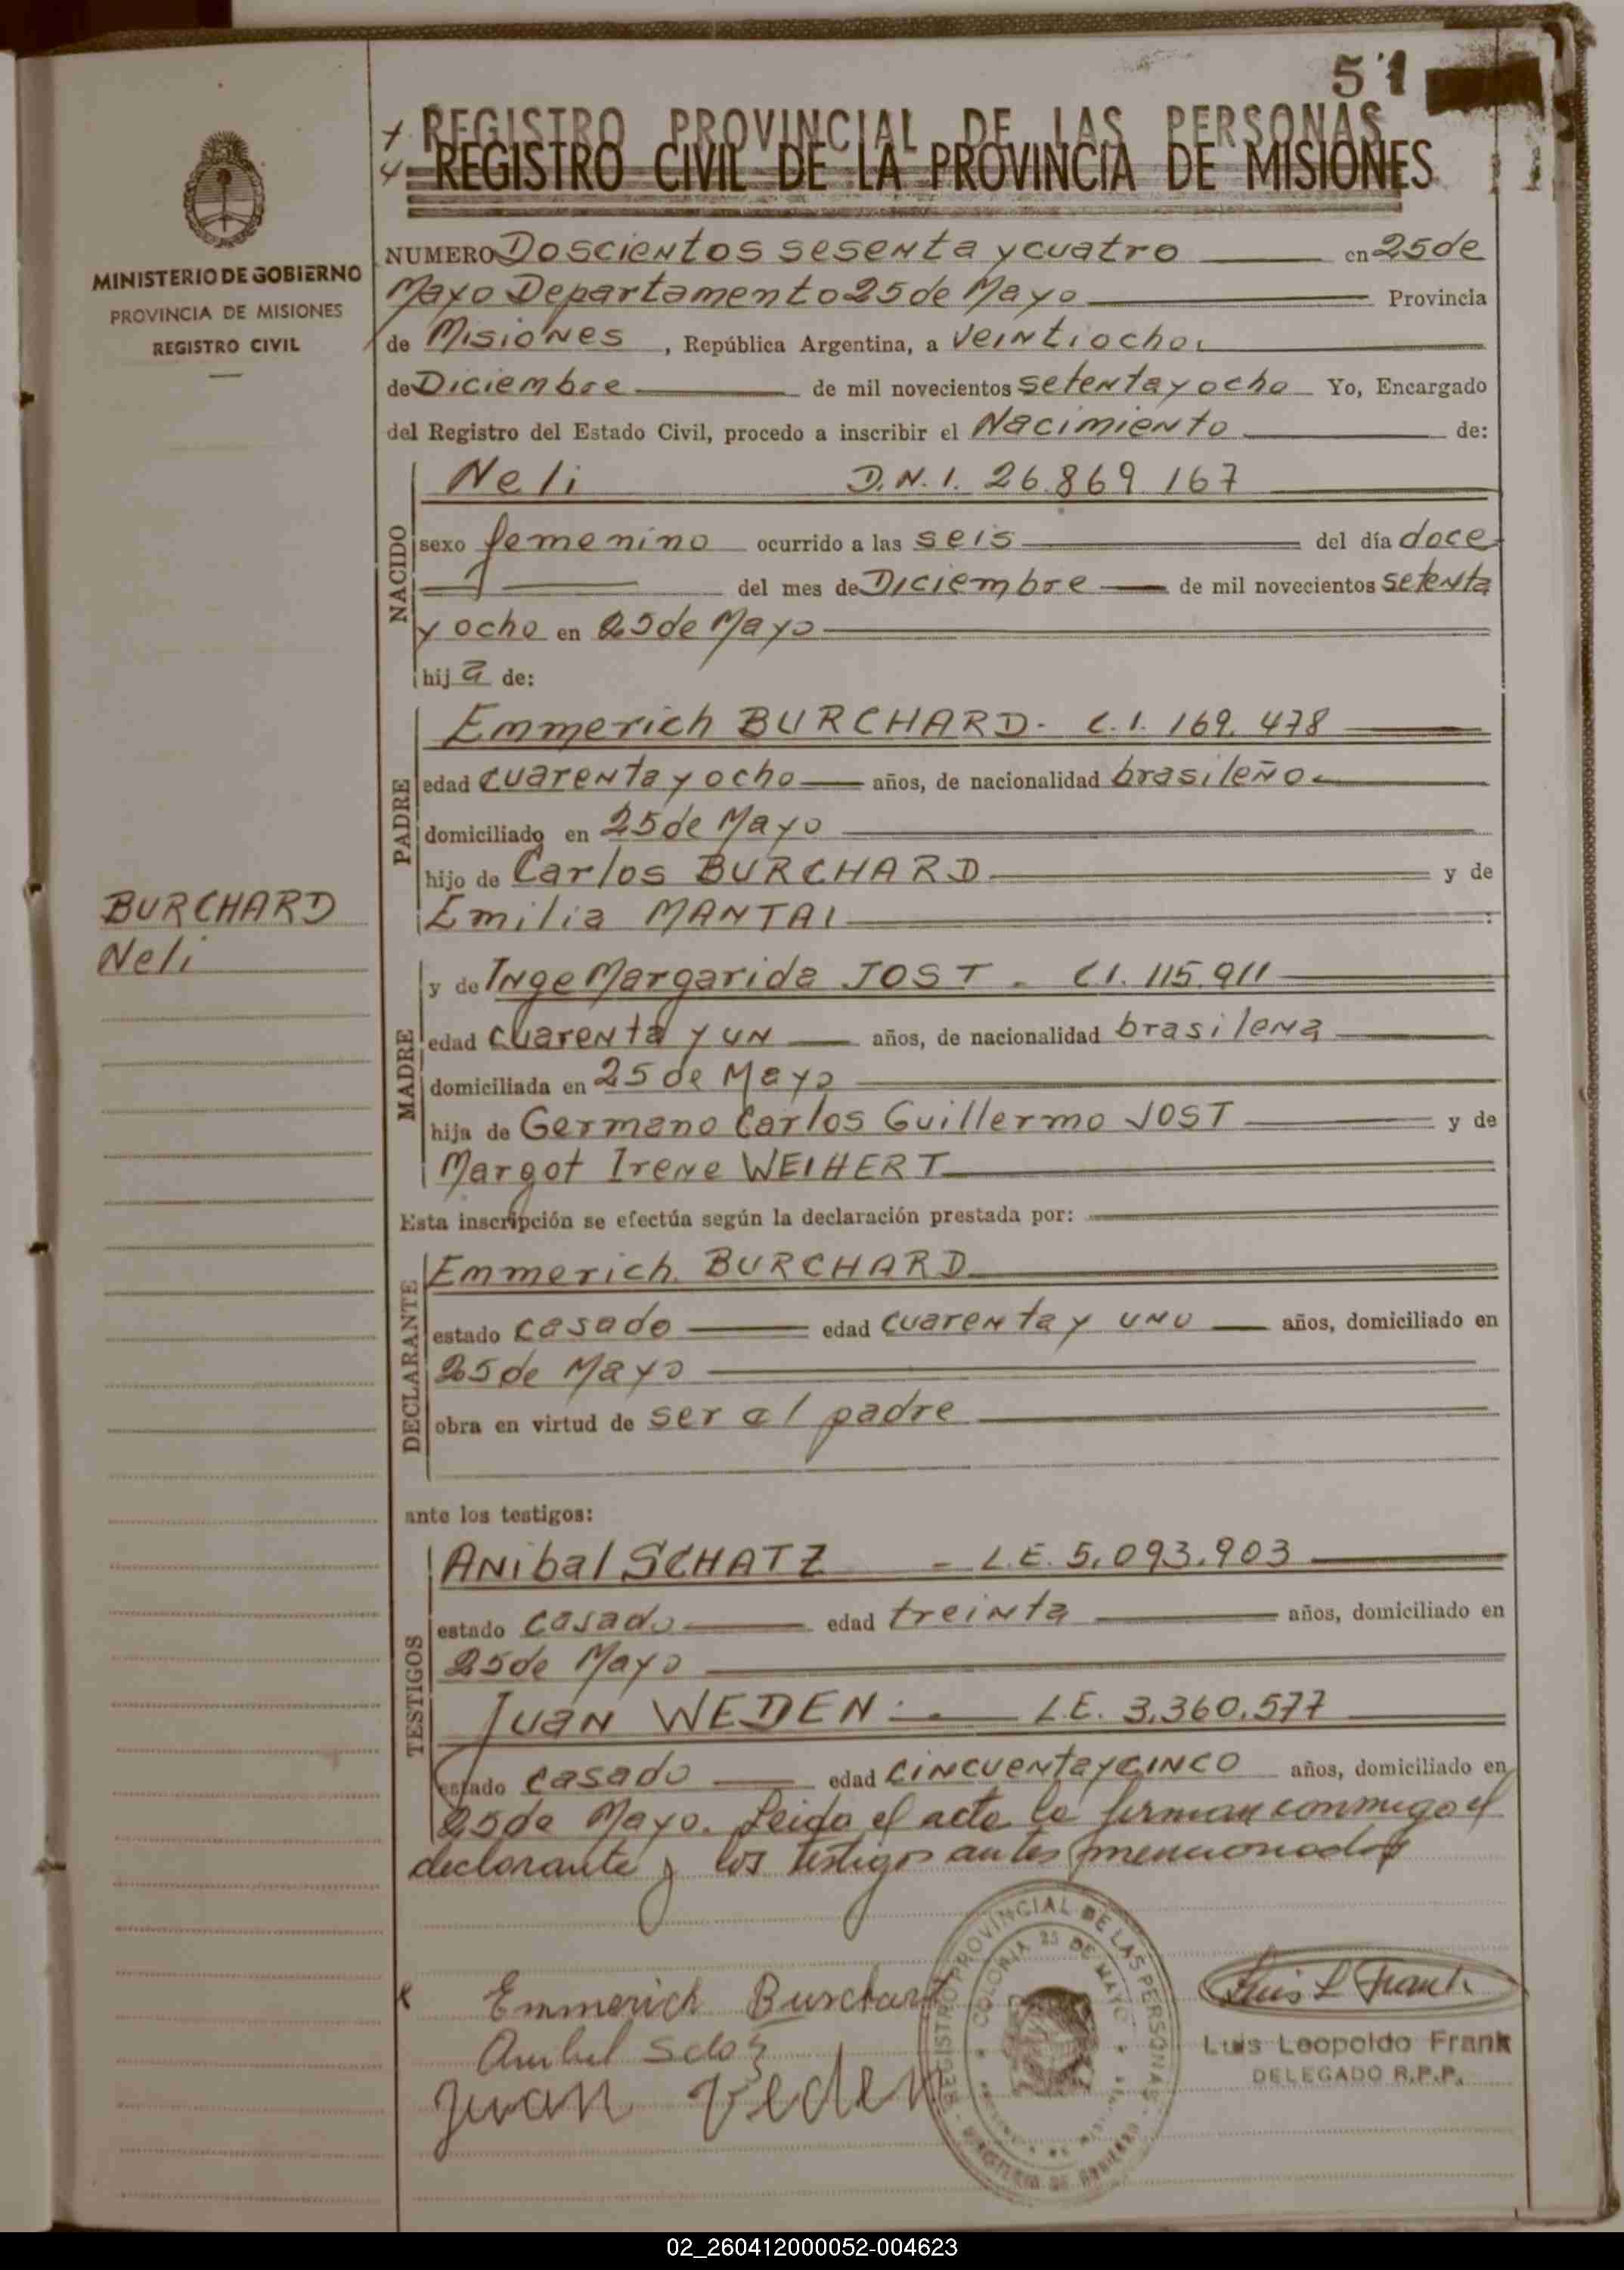 51
REGISTRO PROVINCIAL DE LAS PERSONAS
REGISTRO CIVIL DE LA PROVINCIA DE MISIONES
MINISTERIO DE GOBIERNO
PROVINCIA DE MISIONES
REGISTRO CIVIL
NUMERO Doscientos sesenta y cuatro en 25 de
Mayo Departamento 25 de Mayo Provincia
de Misiones, República Argentina, a veintiocho
de Diciembre de mil novecientos setenta y ocho Yo, Encargado
del Registro del Estado Civil, procedo a inscribir el Nacimiento de:
NACIDO
Neli D.N.I. 26.869.167
sexo femenino ocurrido a las seis del día doce
del mes de Diciembre de mil novecientos setenta
y ocho en 25 de Mayo
hija de:
PADRE
Emmerich BURCHARD- C.I. 169.478
edad cuarenta y ocho años, de nacionalidad brasileño
domiciliado en 25 de Mayo
hijo de Carlos BURCHARD y de
Emilia MANTAI:
BURCHARD
Neli
MADRE
y de Inge Margarida JOST - C.I. 115.911
edad cuarenta y un años, de nacionalidad brasilena
domiciliada en 25 de Mayo
hija de Germano Carlos Guillermo JOST y de
Margot Irene WEIHERT
Esta inscripción se efectúa según la declaración prestada por:
DECLARANTE
Emmerich BURCHARD
estado casado edad cuarenta y uno años, domiciliado en
25 de Mayo
obra en virtud de ser al padre
ante los testigos:
TESTIGOS
Anibal SCHATZ - L.E. 5.093.903
estado casado edad treinta años, domiciliado en
25 de Mayo
Juan WEDEN:- L.E. 3.360.577
estado casado edad cincuenta y cinco años, domiciliado en
25 de Mayo. Leida el acta la firman conmigo el
declarante y los testigos antes mencionados
Emmerich Burchard
Anibal
Juan Veden
REGISTRO PROVINCIAL DE LAS PERSONAS
COLONIA 25 DE MAYO
MINISTERIO DE GOBIERNO
Luis L Frank
Luis Leopoldo Frank
DELEGADO R.P.P.
02_260412000052-004623